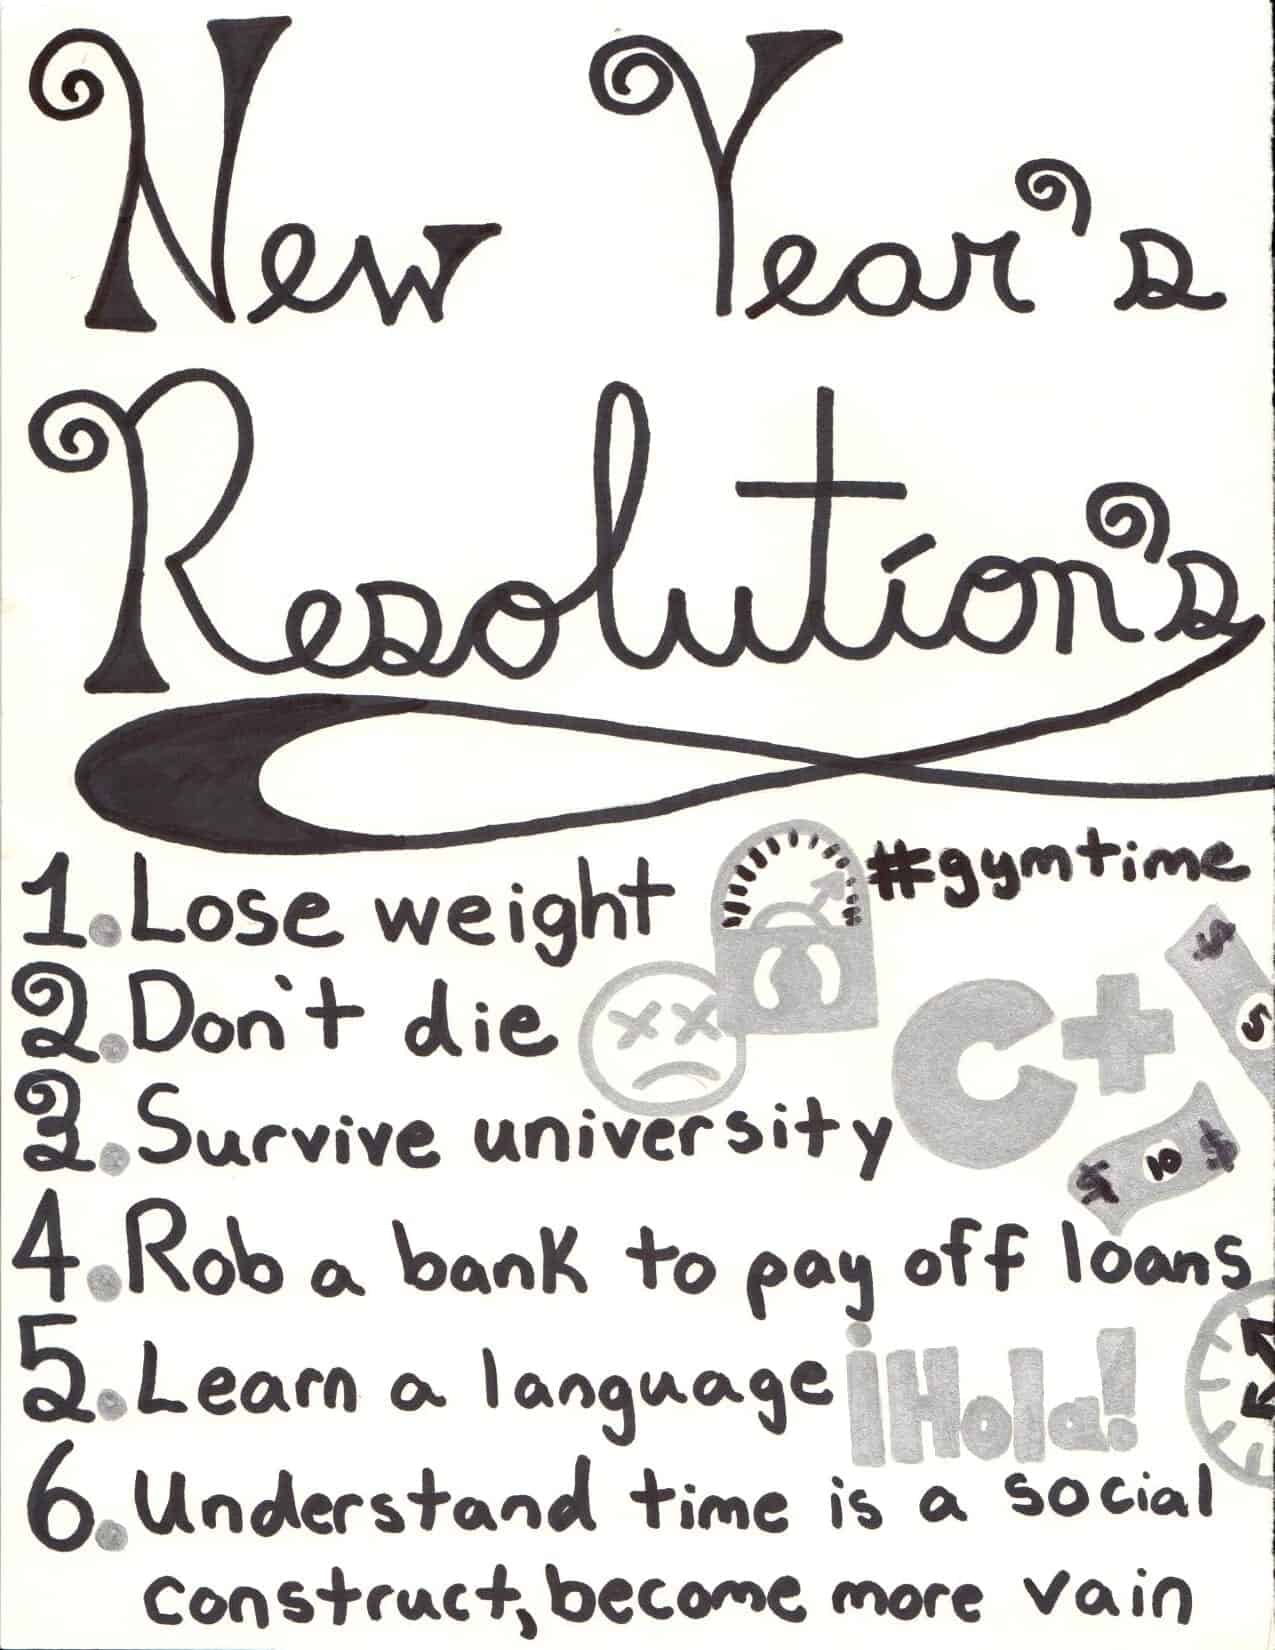 New Year's
Resolution's
1. Lose weight
#gymtime
2. Don't die
C+
$ 5
3. Survive university
$ 10 $
4. Rob a bank to pay off loans
5. Learn a language
¡Hola!
6. Understand time is a social
construct, become more vain